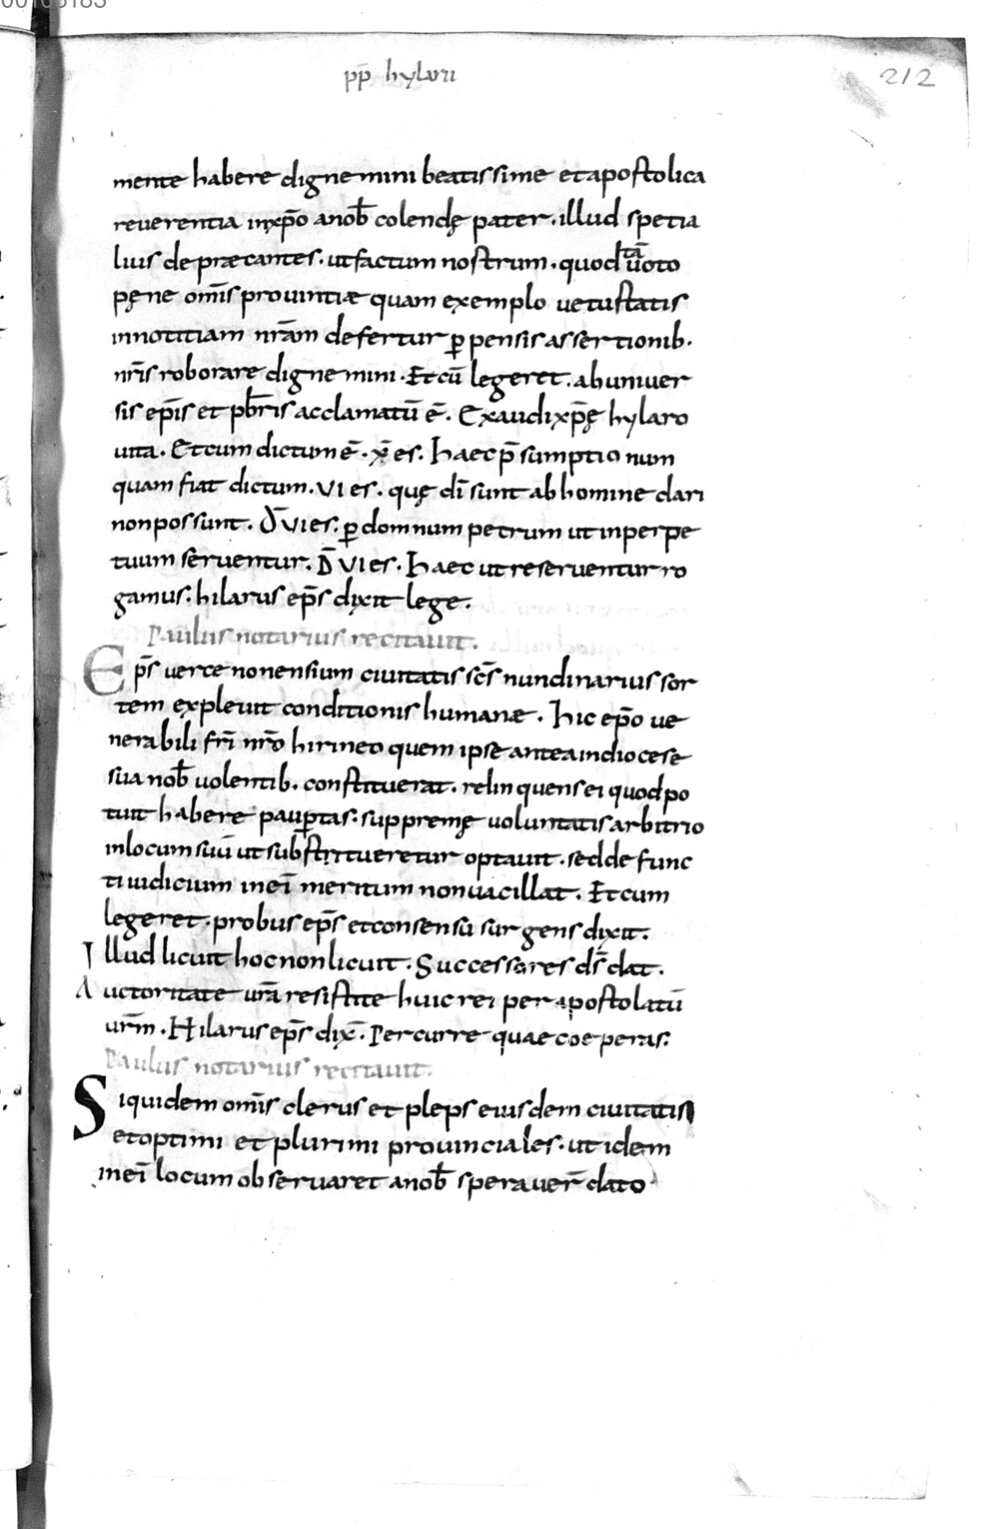 pp̄ hylarii
212
mente habere digne mini beatissime et apostolica
reuerentia in xp̄o a nob̄ colendę pater. illud spetia
lius de præcantes. ut factum nostrum. quod tā uoto
pęne om̄is prouintiæ quam exemplo uetustatis
in notitiam nr̄am defertur ꝑpensis assertionib.
nr̄is roborare digne mini. Et cū legeret. ab uniuer
sis ep̄is et pb̄ris acclamatū ē. Exaudi xp̄ę hylaro
uita. Et cum dictum ē. x̄ es. Haec p̄sumptio num
quam fiat dictum. VI es. quę dī sunt ab homine dari
non possunt. D̄ VI es. ꝑ domnum petrum ut in perpe
tuum seruentur. D̄ VI es. Haec ut reseruentur ro
gamus. hilarus ep̄s dixit lege.
Paulus notarius recitauit.
Ep̄s uercenonensium ciuitatis sc̄s nundinarius sor
tem expleuit conditionis humanæ. Hic ep̄o ue
nerabili fr̄i nr̄o hirineo quem ipse antea in diocese
sua nob̄ uolentib. constituerat. relinquens ei quod po
tuit habere pauꝑtas. suppremę uoluntatis arbitrio
in locum suū ut substitueretur optauit. sed defunc
ti iudicium in eī meritum non uacillat. Et cum
legeret. probus ep̄s et consensū surgens dixit.
Illud licuit hoc non licuit. Successores d̄s dat.
Auctoritate ur̄a resistite huic rei per apostolatū
ur̄m. Hilarus ep̄s dix̄. Percurre quae coeperas.
Paulus notarius recitauit.
Siquidem om̄is clerus et pleps eiusdem ciuitatis
et optimi et plurimi prouinciales. ut idem
in eī locum obseruaret a nob̄ sperauer̄ dato